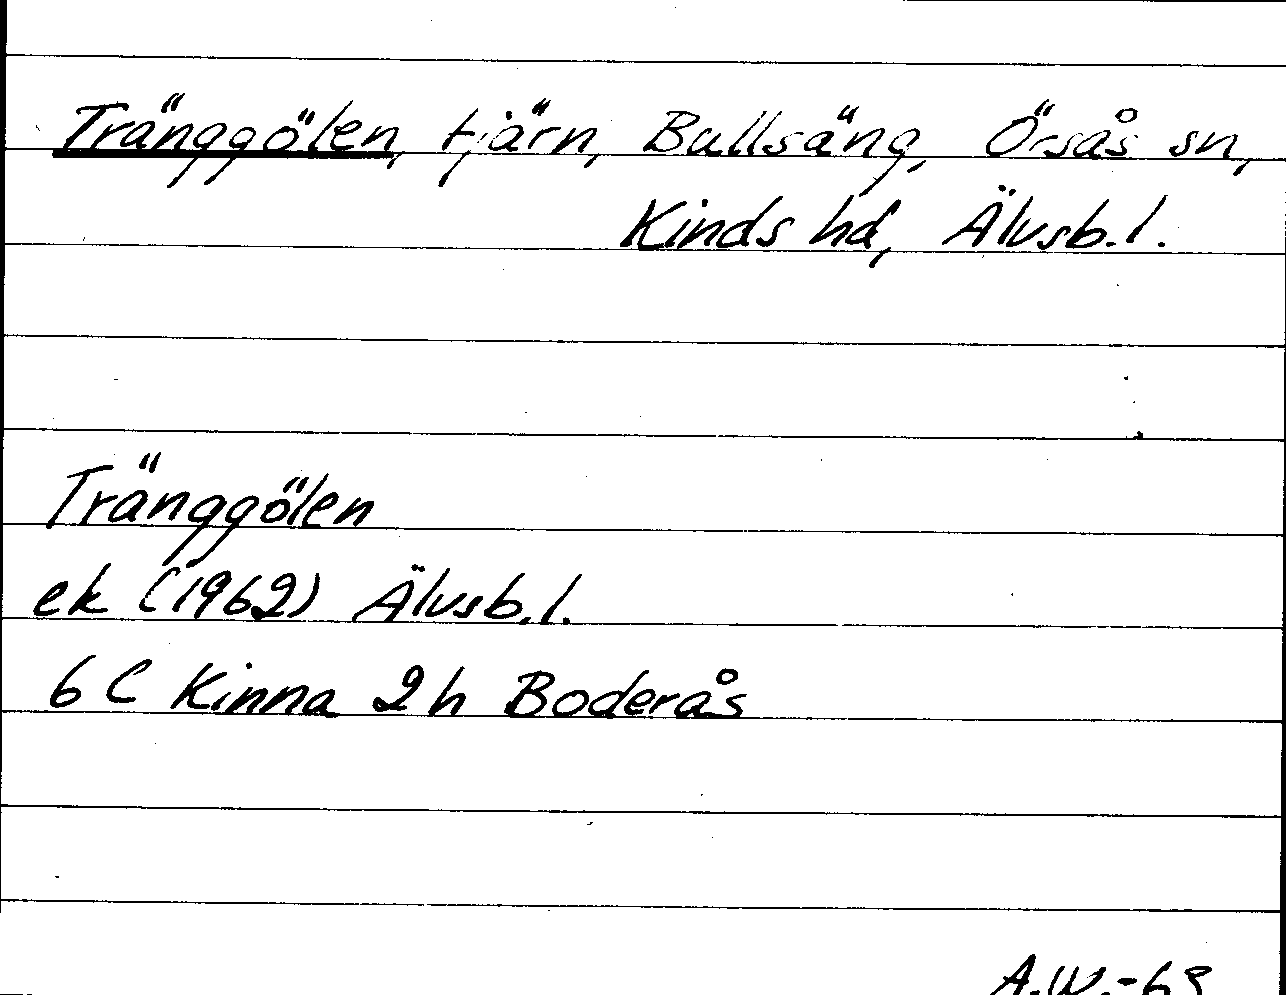 Tränggölen, tjärn, Bullsäng, Örsås sn,
Kinds hd, Älvsb.l.
Tränggölen
ek (1962) Älvsb.l.
6 C Kinna 2 h Boderås
A.W.-63